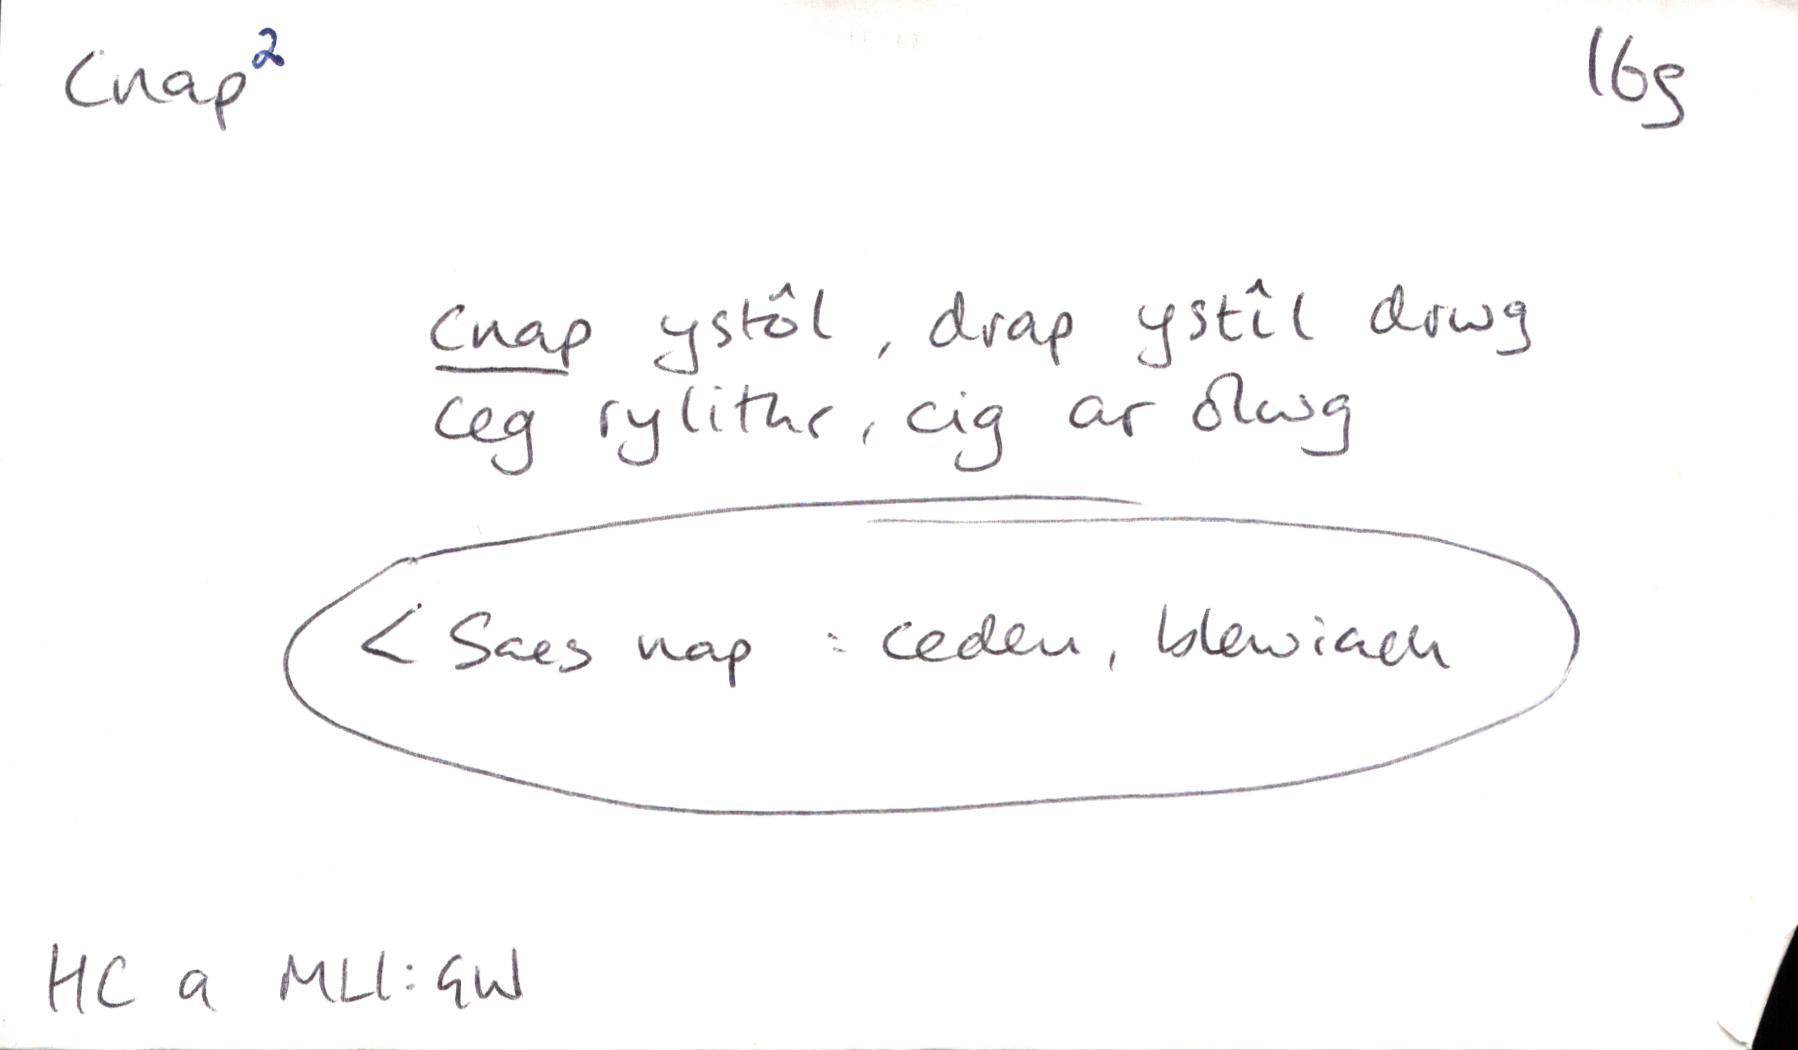 Cnap² 16g
cnap ystôl, drap ystîl drwg
ceg rylithr, cig ar ôlwg
< Saes nap : ceden, blewiach
HC a MLl: GW